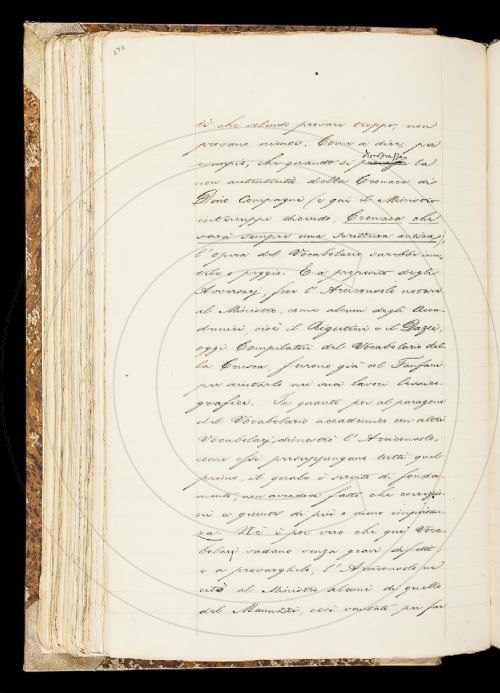 276
ti che volendo provare troppo, non
provano niente. Come a dire, per
esempio, che quando si dimostrasse la
non autenticità della Cronaca di
Dino Compagni (e qui il Ministro
interruppe dicendo, Cronaca che
sarà sempre una scrittura antica),
l'opera del Vocabolario sarebbe inu-
tile o peggio. E a proposito degli
Avversarj, fece l'Arciconsolo notare
al Ministro, come alcuni degli Acca-
demici, cioè il Rigutini e il Dazzi,
oggi Compilatori del Vocabolario del-
la Crusca furono già al Fanfani
per aiutarlo nei suoi lavori lessico-
grafici. In quanto poi al paragone
del Vocabolario accademico con altri
Vocabolarj, dimostrò l'Arciconsolo,
come essi presuppongano tutti quel
primo, il quale è servito di fonda-
mento, fatto che correzio-
ni e giunte di più o meno importan-
za. Nè è poi vero che quei Voca-
bolarj vadano senza gravi difetti:
e a provarglielo, l'Arciconsolo re-
citò al Ministro alcuni di quelli
del Manuzzi, così vantato per far